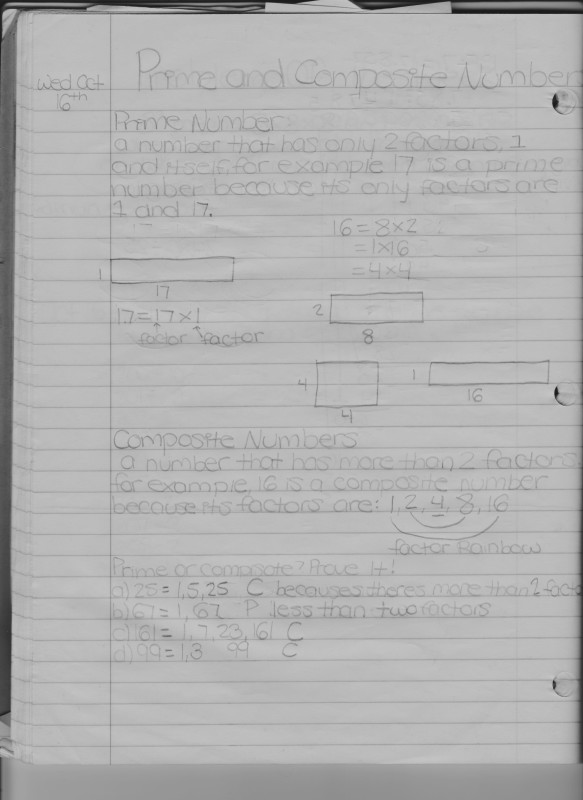 Wed Oct 16th
Prime and Composite Number
Prime Number
a number that has only 2 factors, 1
and itself, for example 17 is a prime
number because its only factors are
1 and 17.
16 = 8×2
= 1×16
= 4×4
1
17
17 = 17×1
factor factor
2
8
4
4
1
16
Composite Numbers
a number that has more than 2 factors
for example, 16 is a composite number
because its factors are: 1, 2, 4, 8, 16
factor Rainbow
Prime or composite? Prove It!
a) 25 = 1, 5, 25 C because theres more than 2 facto
b) 67 = 1, 67 P less than two factors
c) 161 = 1, 7, 23, 161 C
d) 99 = 1, 3 99 C